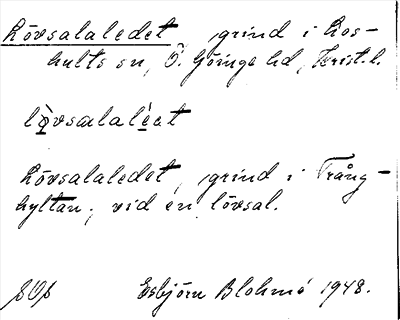 Lövsalaledet grind i Los-
hults sn, Ö. Göinge hd, Krist. l.
lövsalaléat
Lövsalaledet, grind i Trång-
hyltan, vid en lövsal.
Esbjörn Blohmé 1948.